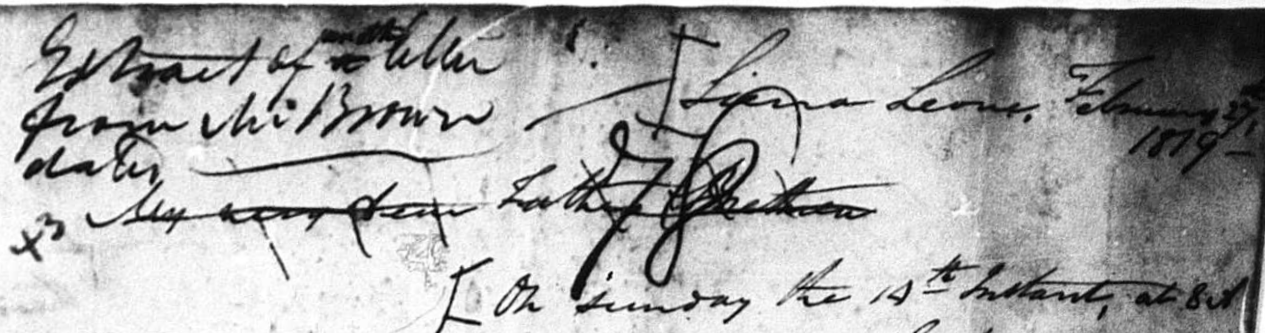 Extract of another letter
from Mr Brown
dated
[Sierra Leone, February 27th,
1819 -
My very dear Fathers & Brethren
[On Sunday the 14th Instant, at